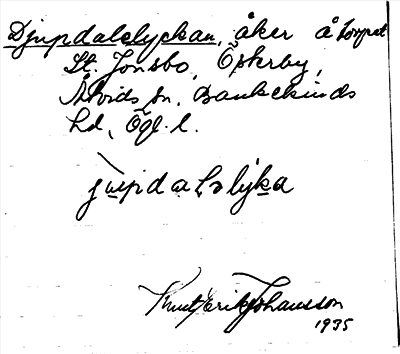 Djupdalslyckan, åker å torpet
St. Jonsbo, Österby,
Åtvids sn, Bankekinds
hd, Ögl. l.
Knut Erik Johansson
1935